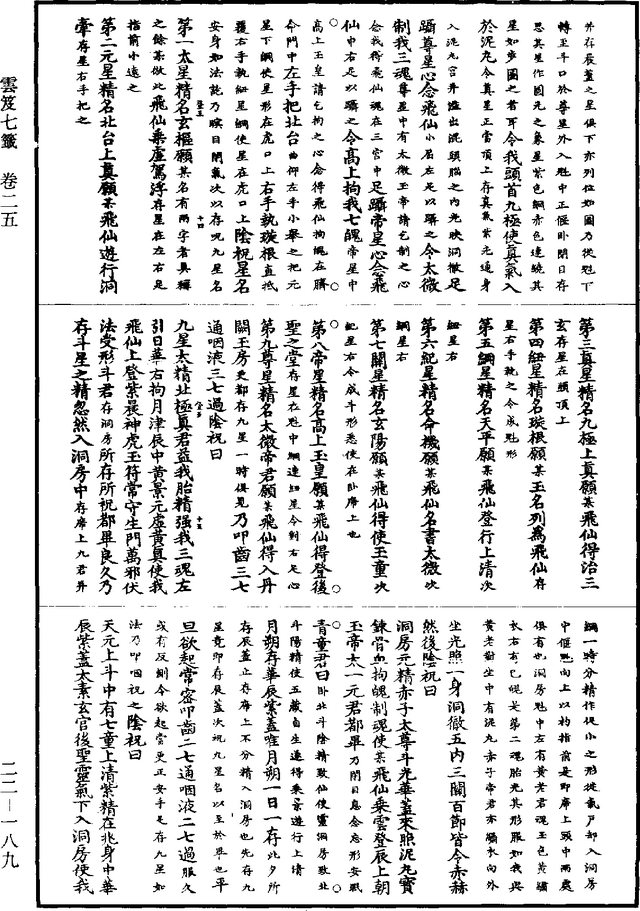 外存辰蓋之星俱下亦列位如圖乃從魁下
轉至斗口於尊星外入魁中正偃卧閉目存
思其星作圓光之象星紫色綱赤色連繞其
星如步圖之者耳令我頭首九極使真氣入
於泥丸令真星正當頂上存真氣紫光通身
入泥丸宮井溢出泥頭腦之內光映洞徹足
躡尊星心念飛仙小名左足以躡之令太微
制我三魂尊星中有太微玉帝請乞制之心
念我得飛仙魂在三宮中足躡帝星心念飛
仙中右足以躡之令高上拘我七魄帝星中
高上玉皇請乞拘之心念得飛仙拘魄在臍
命門中左手把北台曲仰左手小舉之把元
星下綱使星形在虎口上右手執璇根直抵
覆右手執紐星綱使星在虎口上陰祝星名
安身如法訖乃瞑目閉氣次以存祝九星名
十四
第一太星精名玄樞願某名有兩字者具稱
之餘某做此飛仙乘虛駕浮存星在左右足
指前小遠之
第二元星精名北台上真願某飛仙遊行洞
牽存星右手把之
第三真星精名九極上真願某飛仙得治三
玄存星在頭頂上
第四紐星精名璇根願某玉名列為飛仙存
星右手執之令成魁形
第五綱星精名天平願某飛仙登行上清次
紐星右
第六紀星精名命機願某飛仙名書太微次
綱星右
第七關星精名玄陽願某飛仙得使玉童次
紀星右令成斗形悉使在卧席上也
第八帝星精名高上玉皇願某飛仙得登後
聖之堂存星在魁中綱連紐星令對右足心
第九尊星精名太微帝君願某飛仙得入丹
闕玉房更都存九星一時俱見乃叩齒三七
通咽液三七過陰祝曰
十五
九星太精北極真君益我胎精强我三魂左
引日華右拘月津辰中黃景元虛黃真使我
飛仙上登紫晨神虎玉符常守生門萬邪伏
法受形斗君存洞房所存所祝都畢良久乃
存斗星之精忽然入洞房中存席上九君并
綱一時分精作促小之形從氣戶却入洞房
中偃魁向上以杓指前是即席上頭中兩處
俱有也洞房魁中左有黃老君魂玉色黃繡
長右右有己魄是第二魂胎光其形服如我與
黃老對坐中有泥丸赤子帝君赤繡衣向外
坐光照一身洞徹五內三關百節皆令赤赫
然後陰祝曰
洞房元精赤子太尊斗光華蓋來照泥丸寶
錬骨血拘魄制魂使某飛仙乘雲登辰上朝
玉帝太一元君都畢乃閉目息念忘形安眠
青童君曰卧北斗陰精致仙使靈洞房致北
斗陽精使五藏自生遠得乘景遊行上清
月朔存華辰紫蓋唯月朔一日一存此夕所
存辰蓋止存席上不分精入洞房也先存九
星竟即存辰蓋次祝九星名以至於畢也平
旦欲起常密叩齒二七通咽液二七過服久
或有反側令欲起當更正安手足存九星如
法乃叩咽祝之陰祝曰
天元上斗中有七童上清紫精在兆身中華
辰紫蓋太素玄宮後聖靈氣下入洞房使我
雲笈七籤 卷二五
二二—一八九